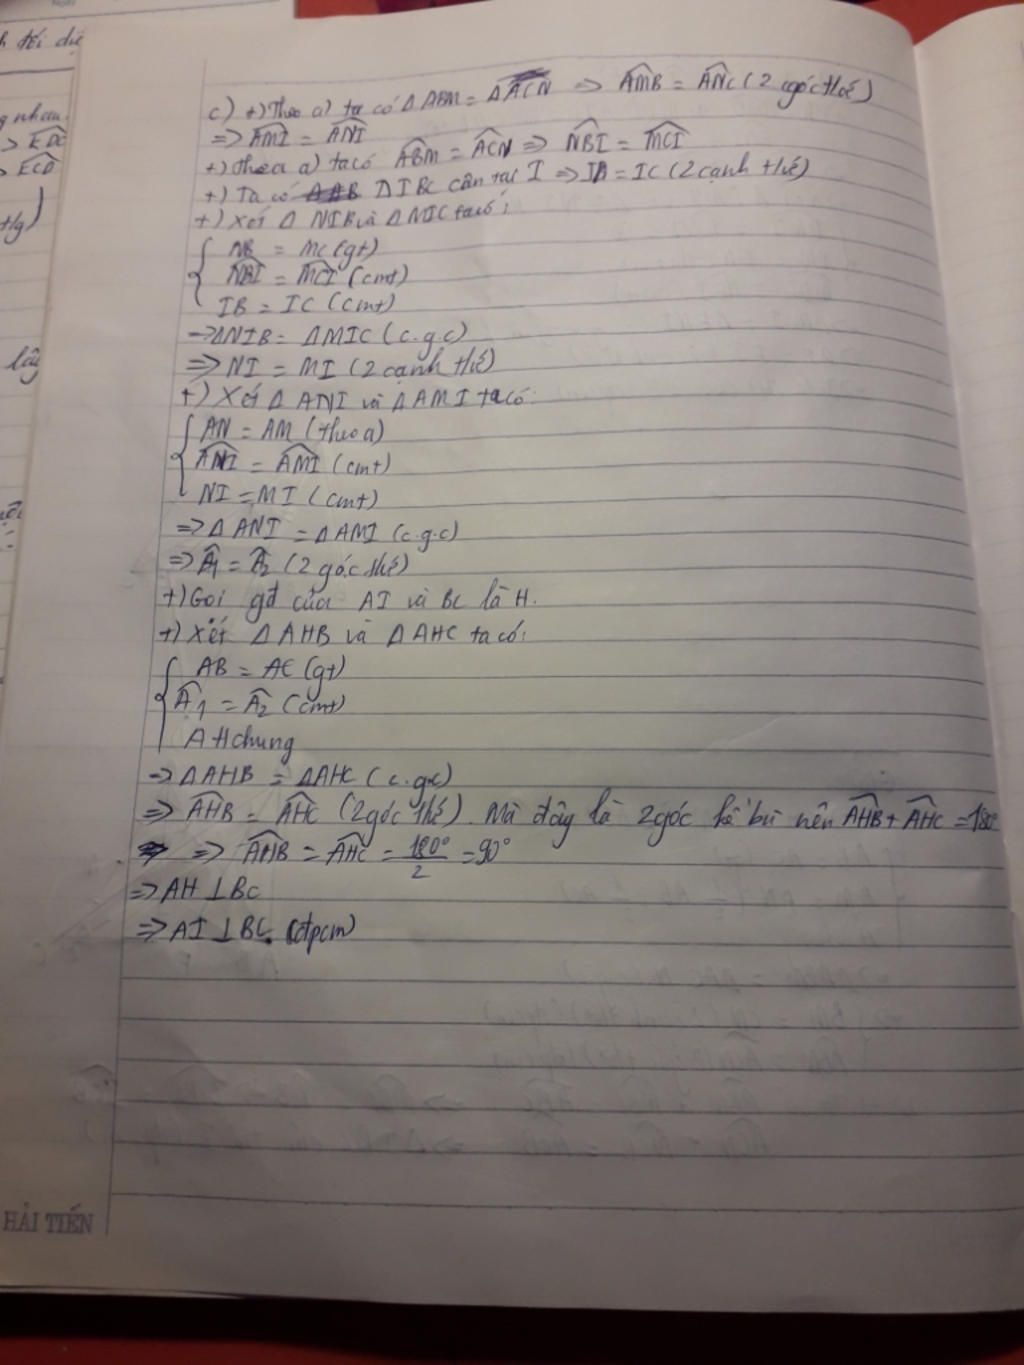 h đối diệ
g nhau.
=> EDC
ECD
t/g)
lấy
c) +) Theo a) ta có Δ ABM = Δ ACN => AMB = ANC (2 góc thế)
=> AMI = ANI
+) theo a) ta có ABM = ACN => NBI = MCI
+) Ta có Δ IBC cân tại I => IB = IC (2 cạnh thế)
+) Xét Δ NIB và Δ MIC ta có:
NB = MC (gt)
NBI = MCI (cmt)
IB = IC (cmt)
=> ΔNIB = ΔMIC (c.g.c)
=> NI = MI (2 cạnh thế)
+) Xét Δ ANI và Δ AMI ta có:
AN = AM (theo a)
ANI = AMI (cmt)
NI = MI (cmt)
=> Δ ANI = Δ AMI (c.g.c)
=> A1 = A2 (2 góc thế)
+) Gọi gđ của AI và BC là H.
+) Xét Δ AHB và Δ AHC ta có:
AB = AC (gt)
A1 = A2 (cmt)
AH chung
=> ΔAHB = ΔAHC (c.g.c)
=> AHB = AHC (2 góc thế). Mà đây là 2 góc kề bù nên AHB + AHC = 180°
=> AHB = AHC = 180°/2 = 90°
=> AH ⊥ BC
=> AI ⊥ BC. (đpcm)
HẢI TIẾN